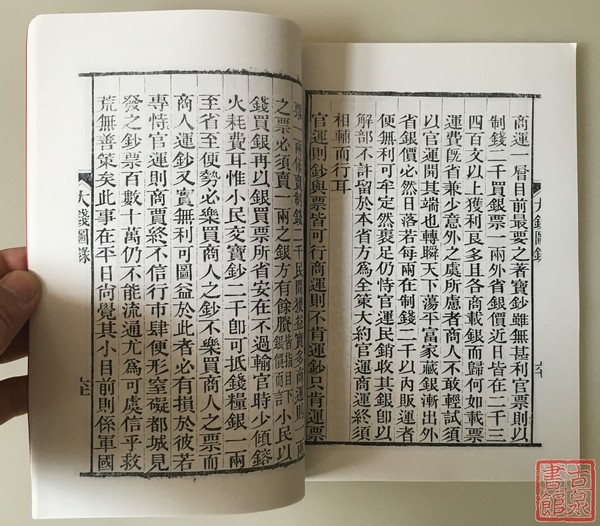 商運一層目前最要之著寶鈔雖無甚利官票則以
制錢二千買銀票一兩外省銀價近日皆在二千三
四百文以上獲利良多且各商載銀而歸何如載票
運費既省兼少意外之虞所慮者商人不敢輕試須
以官運開其端也轉瞬天下蕩平富家藏銀漸出外
省銀價必然日落若每兩在制錢二千以內販運者
便無利可牟定然裹足仍恃官運民銷收其銀卽
解部不許留於本省方為全策大約官運商運終須
相輔而行耳
官運則鈔與票皆可行商運則不肯運鈔只肯運票
大錢圖錄
票一兩作賣制錢二千民間獲益實多商運
之票必須賣一兩之銀方有餘賸皆指目下銀價而言小民以
錢買銀再以銀買票所省安在不過輸官時少傾鎔
火耗費耳惟小民交寶鈔二千卽可抵錢糧銀一兩
至省至便勢必樂買商人之鈔不樂買商人之票而
商人運鈔又實無利可圖益於此者必有損於彼若
專恃官運則商賈終不信行市肆便形窒礙都城見
發之鈔票百數十萬仍不能流通尤為可虞信乎救
荒無善策矣此事在平日尚覺其小目前則係軍國
大錢圖錄
古泉書館